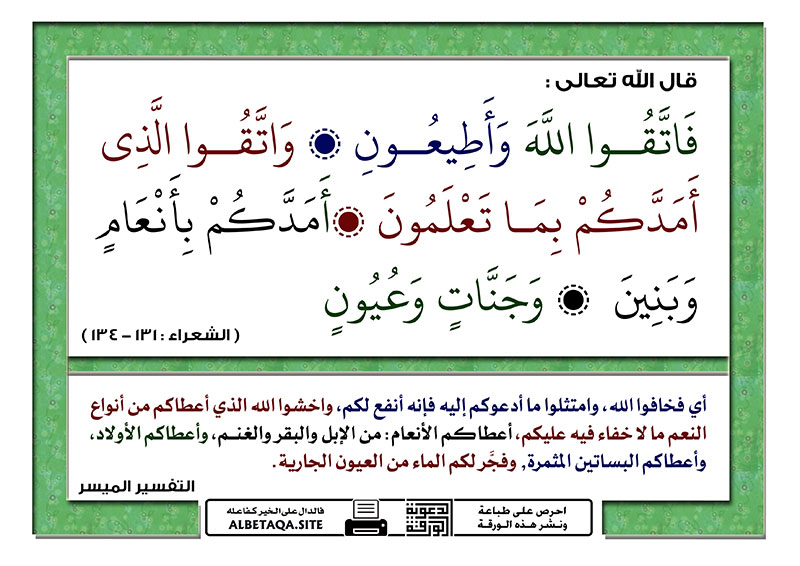 قال الله تعالى :
فَاتَّقُــوا اللَّهَ وَأَطِيعُــونِ ۝ وَاتَّقُــوا الَّذِى
أَمَدَّكُمْ بِمَــا تَعْلَمُونَ ۝ أَمَدَّكُمْ بِأَنْعَامٍ
وَبَنِينَ ۝ وَجَنَّاتٍ وَعُيُونٍ
( الشعراء : ١٣١ – ١٣٤ )
أي فخافوا الله، وامتثلوا ما أدعوكم إليه فإنه أنفع لكم، واخشوا الله الذي أعطاكم من أنواع
النعم ما لا خفاء فيه عليكم، أعطاكم الأنعام: من الإبل والبقر والغنـم، وأعطاكم الأولاد،
وأعطاكم البساتين المثمرة, وفجَّر لكم الماء من العيون الجارية.
التفسير الميسر
احرص على طباعة
ونشر هذه الورقة
الورقة الدعوية
فالدال على الخير كفاعله
ALBETAQA.SITE